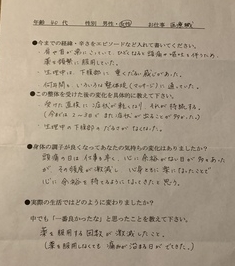 年齢 代 性別 男性・女性 お仕事 医療職
●今までの経緯・辛さをエピソードなど入れて書いてください。
肩や首が常にこっていて、ひどくなると頭痛や嘔吐を伴うため、
薬を頻繁に服用していた。
生理中は、下腹部に重くだるい感じがあった。
何回か、いろいろな整体院(マッサージ)に通っていた。
●この整体を受けた後の変化を具体的に教えて下さい。
受けた直後に頭痛が軽くなり、それが持続する。
生理中の下腹部のだるさがなくなった。
●身体の調子が良くなってあなたの気持ちの変化はありましたか?
頭痛の日は仕事を楽しく、心に余裕がない日が多かった
が、その頻度が激減し、心身ともに楽になったことで
心に余裕を持てるようになったと思う。
●実際の生活ではどのように変わりましたか?
中でも「一番良かったな」と思ったことを教えて下さい。
薬を服用する回数が激減したこと。
(薬を服用しなくても痛みが治まる日ができた。)